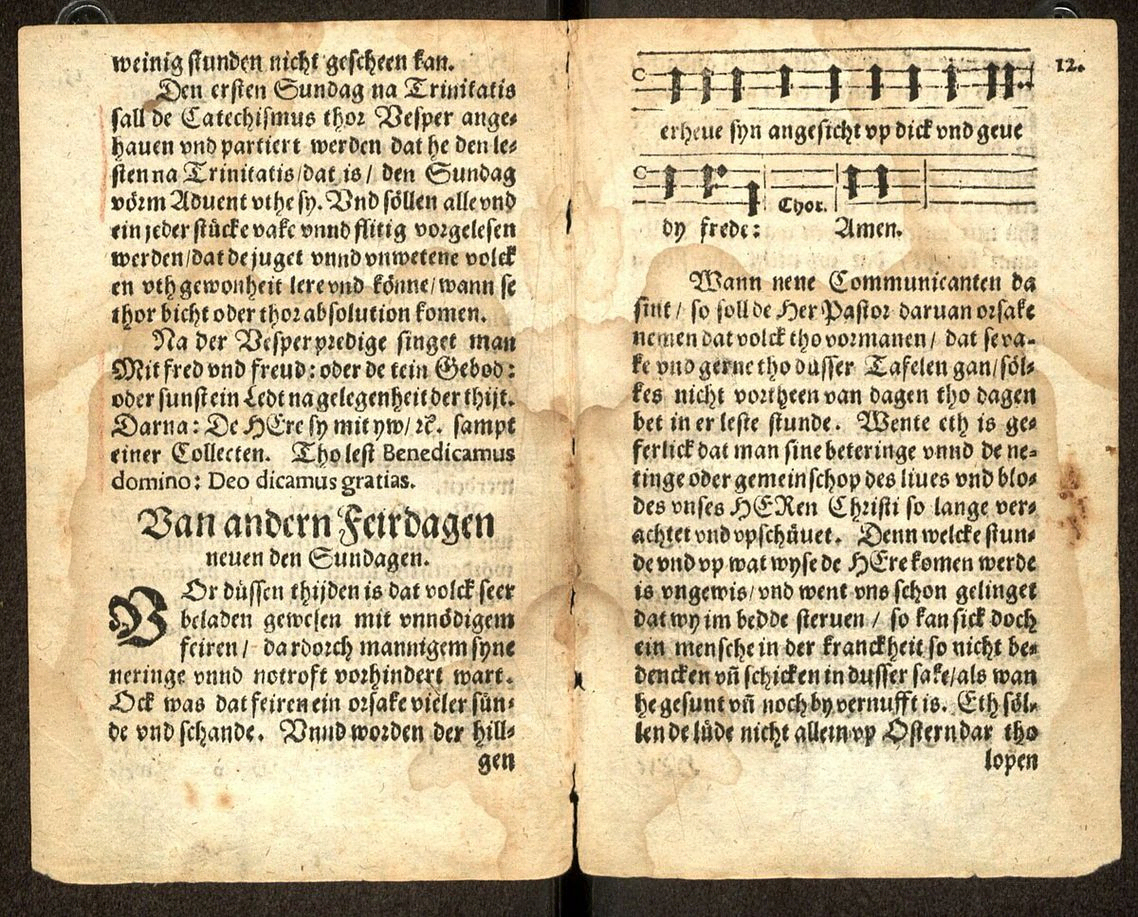 weinig stunden nicht gescheen kan.
Den ersten Sundag na Trinitatis
sall de Catechismus thor Vesper ange⸗
hauen vnd partiert werden dat he den le⸗
sten na Trinitatis/dat is/ den Sundag
vörm Aduent vthe sy. Vnd söllen alle vnd
ein jeder stücke vake vnnd flitig vorgelesen
werden/dat de juget vnnd vnwetene volck
en vth gewonheit lere vnd könne/wann se
thor bicht oder thor absolution komen.
Na der Vesperpredige singet man
Mit fred vnd freud: oder de tein Gebod:
oder sunst ein Ledt na gelegenheit der thijt.
Darna: De HEre sy mit yw/ ꝛc. sampt
einer Collecten. Tho lest Benedicamus
domino: Deo dicamus gratias.
Van andern Feirdagen
neuen den Sundagen.
VOr düssen thijden is dat volck seer
beladen gewesen mit vnnödigem
feiren/ dardorch mannigem syne
neringe vnnd notroft vorhindert wart.
Ock was dat feiren ein orsake vieler sün⸗
de vnd schande. Vnnd worden der hill⸗
gen
12.
erheue syn angesicht vp dick vnd geue
Chor.
dy frede: Amen.
Wann nene Communicanten da
sint/ so soll de Her Pastor daruan orsake
nemen dat volck tho vormanen/ dat se va⸗
ke vnd gerne tho düsser Tafelen gan/söl⸗
kes nicht vortheen van dagen tho dagen
bet in er leste stunde. Wente eth is ge⸗
ferlick dat man sine beteringe vnnd de ne⸗
tinge oder gemeinschop des liues vnd blo⸗
des vnses HERen Christi so lange ver⸗
achtet vnd vpschüuet. Denn welcke stun⸗
de vnd vp wat wyse de HEre komen werde
is vngewis/vnd went vns schon gelinget
dat wy im bedde steruen/ so kan sick doch
ein mensche in der kranckheit so nicht be⸗
dencken vn̄ schicken in dusser sake/als wan
he gesunt vn̄ noch by vernufft is. Eth söl⸗
len de lüde nicht allein vp Ostern dar tho
lopen